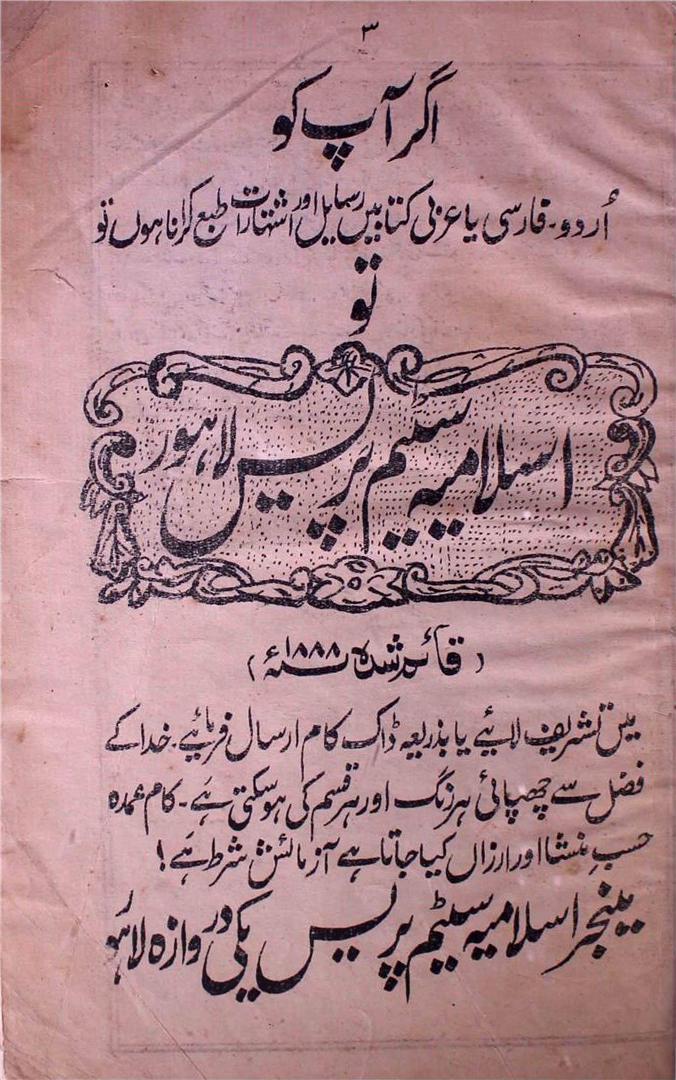 ۳
اگر آپ کو
اُردو۔ فارسی یا عربی کتابیں رسایل اور اشتہارات طبع کرانا ہوں تو
تو
اسلامیہ سٹیم پریس لاہور
(قائم شدہ ۱۸۸۸ء)
میں تشریف لائیے یا بذریعہ ڈاک کام ارسال فرمائیے۔ خدا کے
فضل سے چھپائی ہر رنگ اور ہر قسم کی ہو سکتی ہے۔ کام عمدہ
حسبِ منشا اور ارزاں کیا جاتا ہے آزمائش شرط ہے!
مینجر اسلامیہ سٹیم پریس یکی دروازہ لاہور